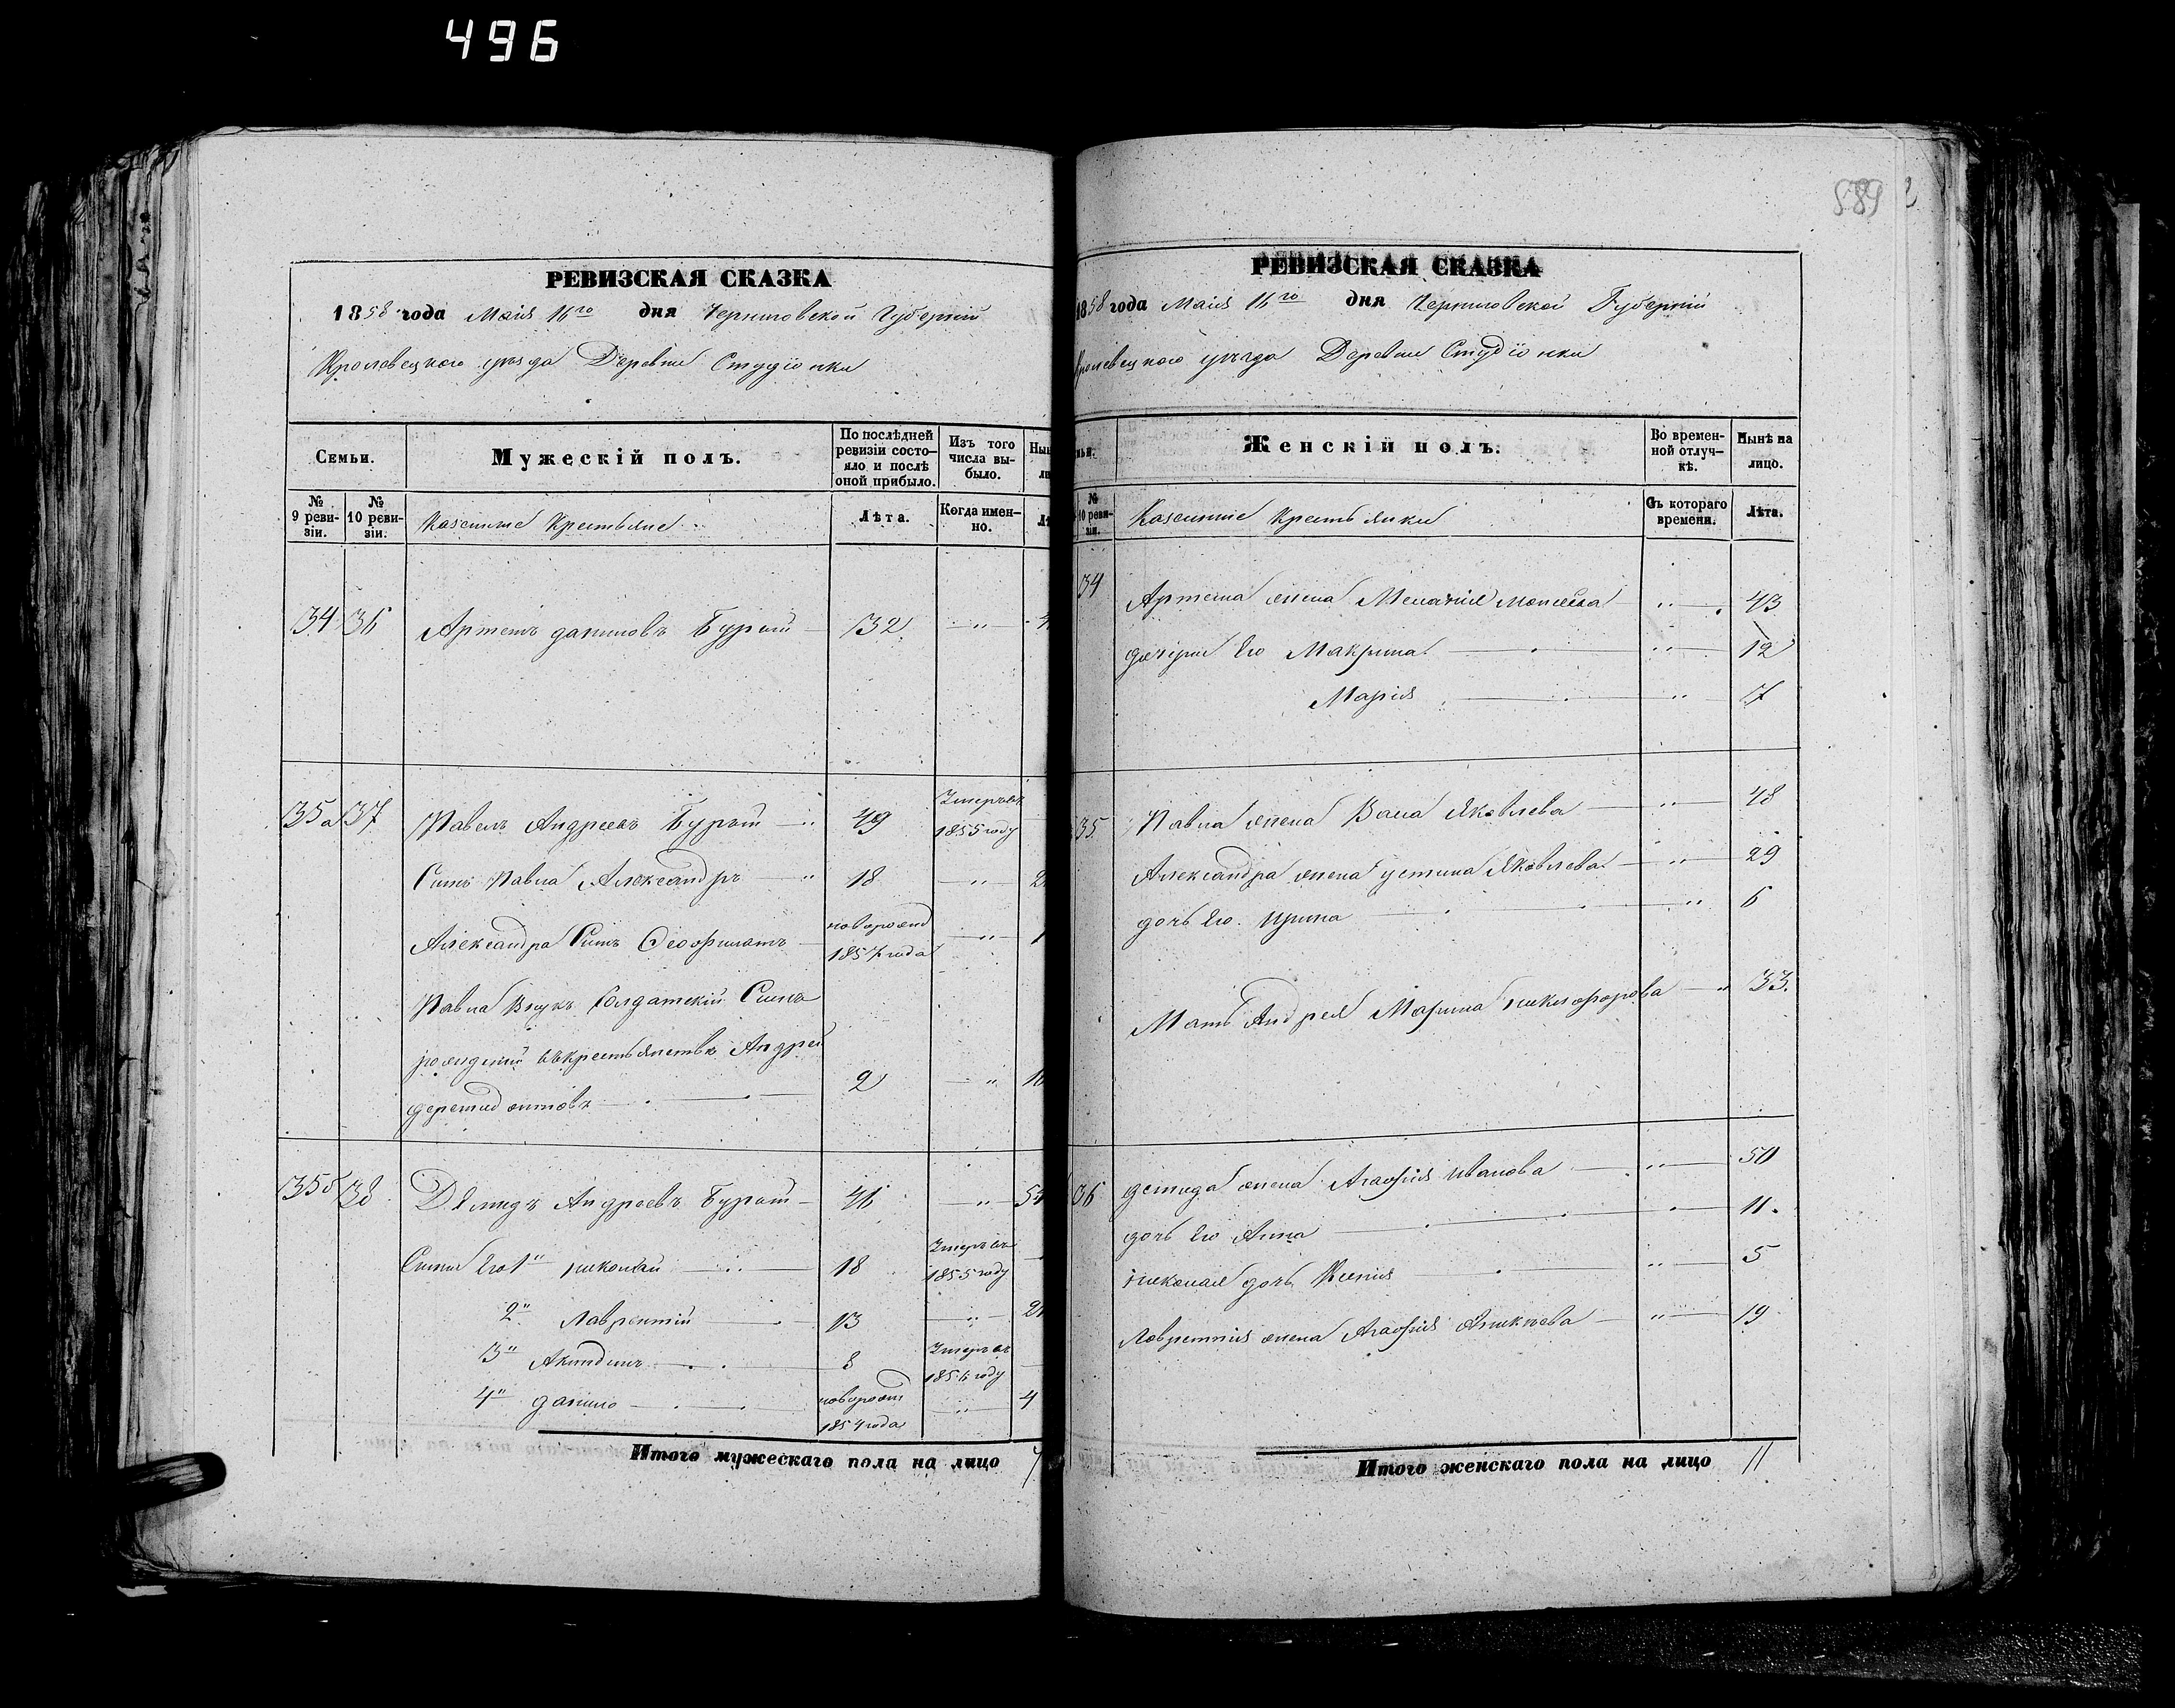 496
589
РЕВИЗСКАЯ СКАЗКА
1858 года Маія 16го дня Черниговской Губерніи
Кролевецкого уезда Деревни Студіонки
Семьи.
Мужескій полъ.
По послѣдней ревизіи состояло и послѣ оной прибыло.
Изъ того числа выбыло.
№ 9 ревизіи.
№ 10 ревизіи.
Казенные Крестьяне
Лѣта.
Когда именно.
34 36 Артемъ даниловъ Бурый 32 "
35а 37 Павелъ Андреевъ Бурый 49 Умеръ въ 1855 году
Сынъ Павла Александръ 18 "
Александра Сынъ Феофилактъ новорожд 1857 года "
Павла Внукъ Солдатскій Сынъ
рожденый въ крестьянствѣ Андрей
2 "
35б 38 Демидъ Андреевъ Бурый 46 "
Сыны Его 1" николай 18 Умеръ въ 1855 году
2" Лаврентій 13 "
3" Акиндинъ 8 Умеръ въ 1856 году
4" данило новорожд 1854 года " 4
Итого мужескаго пола на лицо 7
РЕВИЗСКАЯ СКАЗКА
1858 года Маія 16го дня Черниговской Губерніи
Кролевецкого уезда Деревни Студіонки
Женскій полъ.
Во временной отлучкѣ.
Нынѣ на лицо.
№ 10 ревизіи.
Казенные Крестьянки
Съ котораго времени.
Лѣта.
34 Артема жена Меланія Моисеева " 43
дочери Его Макрина " 12
Марія " 7
35 Павла жена Васа Яковлева " 48
Александра жена устина Яковлева " 29
дочь Его Ирина " 6
Мать Андрея Марина никифорова " 33
36 демида жена Агафія иванова " 50
дочь Его Анна 11
николая дочь Ксенія " 5
Лаврентія жена Агафія Аникѣева " 19
Итого женскаго пола на лицо 11